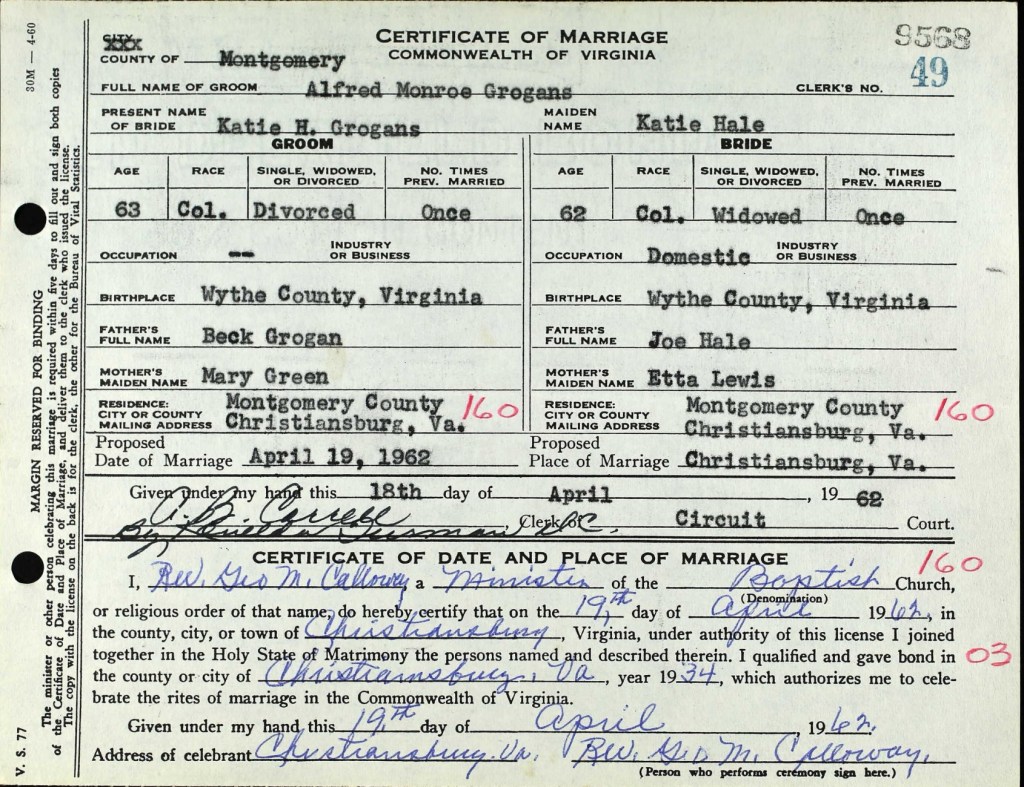 CERTIFICATE OF MARRIAGE
COMMONWEALTH OF VIRGINIA
9568
49
CITY XXX
COUNTY OF Montgomery
FULL NAME OF GROOM Alfred Monroe Grogans CLERK'S NO.
PRESENT NAME OF BRIDE Katie H. Grogans MAIDEN NAME Katie Hale
GROOM BRIDE
AGE RACE SINGLE, WIDOWED, OR DIVORCED NO. TIMES PREV. MARRIED AGE RACE SINGLE, WIDOWED, OR DIVORCED NO. TIMES PREV. MARRIED
63 Col. Divorced Once 62 Col. Widowed Once
OCCUPATION -- INDUSTRY OR BUSINESS OCCUPATION Domestic INDUSTRY OR BUSINESS
BIRTHPLACE Wythe County, Virginia BIRTHPLACE Wythe County, Virginia
FATHER'S FULL NAME Beck Grogan FATHER'S FULL NAME Joe Hale
MOTHER'S MAIDEN NAME Mary Green MOTHER'S MAIDEN NAME Etta Lewis
RESIDENCE: CITY OR COUNTY Montgomery County 160 RESIDENCE: CITY OR COUNTY Montgomery County 160
MAILING ADDRESS Christiansburg, Va. MAILING ADDRESS Christiansburg, Va.
Proposed Date of Marriage April 19, 1962 Proposed Place of Marriage Christiansburg, Va.
Given under my hand this 18th day of April, 1962
A. B. Correll, Clerk of Circuit Court.
By D.C.
CERTIFICATE OF DATE AND PLACE OF MARRIAGE 160
I, Rev. Geo M. Calloway a Minister of the Baptist Church,
(Denomination)
or religious order of that name, do hereby certify that on the 19th day of April 1962, in
the county, city, or town of Christiansburg, Virginia, under authority of this license I joined
together in the Holy State of Matrimony the persons named and described therein. I qualified and gave bond in 03
the county or city of Christiansburg, Va, year 1934, which authorizes me to cele-
brate the rites of marriage in the Commonwealth of Virginia.
Given under my hand this 19th day of April, 1962.
Address of celebrant Christiansburg, Va. Rev. Geo M. Calloway.
(Person who performs ceremony sign here.)
30M — 4-60
MARGIN RESERVED FOR BINDING
The minister or other person celebrating this marriage is required within five days to fill out and sign both copies
of the Certificate of Date and Place of Marriage, and deliver them to the clerk who issued the license.
The copy with the license on the back is for the clerk, the other for the Bureau of Vital Statistics.
V. S. 77